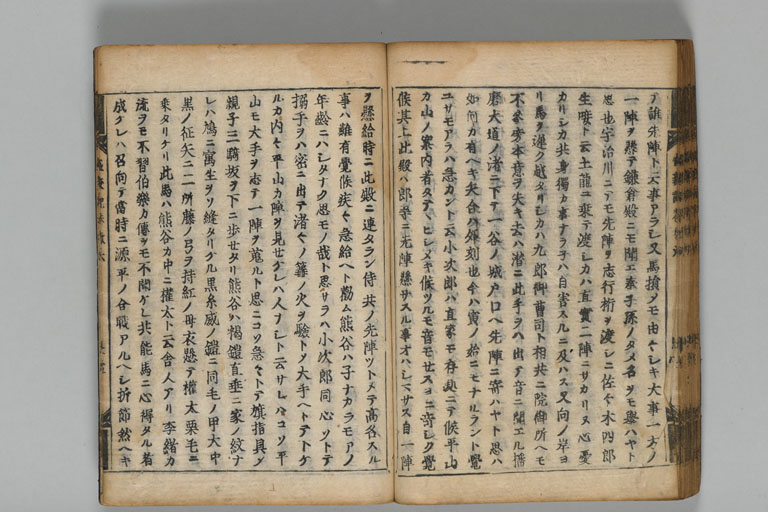 テ誰先陣ト云事アラシ又馬損シメモ由々シキ大事一方ノ
一陣ヲ懸テ鎌倉殿ニモ聞エ奉子孫ノタメ名ヲモ擧ハヤト
思也宇治川ニテモ先陣ヲ志行桁ヲ渡シニ佐々木四郎
生唼ト云土龍ニ乗テ渡シカハ直實二陣ニサカリヌ心憂
カリシカ共身獨カ事ナラネハ自害スルニ及ハス又向ノ岸ヨ
リ馬ヲ遅ク越タリシカハ九郎御曹司ト相共ニ院御所ヘモ
不參本意ヲ失キ去ハ潜ニ此手ヲハ出テ音ニ聞エル播
磨大道ノ渚ニ下テ一谷ノ城戸口ヘ先陣ニ寄ハヤト思ハ
如何カ有ヘキ矢合ハ卯刻也今ハ寅ノ始ニモナルラント覺
ユサモアラハ急カント云小次郎ハ直家モ存候ニテ候平山
カ山ノ案内者タテヽヒシメキ候ツルモ音モセスヨニ奇シク覺
候其上此殿ハ郎等ニ先陣懸サスル事オハシマサス自一陣
ヲ懸給時ニ此殿ニ連タラン侍共ノ先陣ツトメテ高名スル
事ハ難有覺候疾々急給ヘト勸ム熊谷ハ子ナカラモアノ
年齢ニハシタナク思モノ哉ト思サラハ小次郎同心ツトテ
搦手ヲハ密ニ出テ渚々ノ篝ノ火ヲ驗トソ大手ヘトテトケ
ルカ内々平山カ陣ヲ見セケレハ人ナシト云サレハコソ平
山モ大手ヲ志テ一陣ヲ蒐ルト思ニコソ急々トテ旗指具シ
親子三騎坂ヲ下ニ歩セタリ熊谷ハ褐鎧直垂ニ家ノ紋ナ
レハ鳩ニ寓生ヲソ縫タリケル黒糸威ノ鎧ニ同毛ノ甲大中
黒ノ征矢ニ二所藤ノ弓ヲ持紅ノ母衣懸テ權太栗毛ニ
乗タリケリ此馬ハ熊谷カ中ニ權太ト云舎人アリ李緒カ
流ヲモ不習伯樂カ傳ヲモ不聞ケレ共能馬ニ心得タル者
成ケレハ召向テ當時ニ源平ノ合戰アルヘシ折節然ヘキ